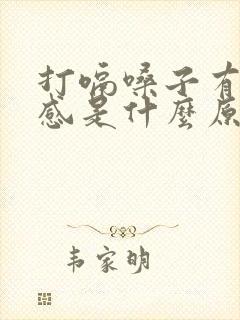 打嗝嗓子有
感是什麼原
韦家明